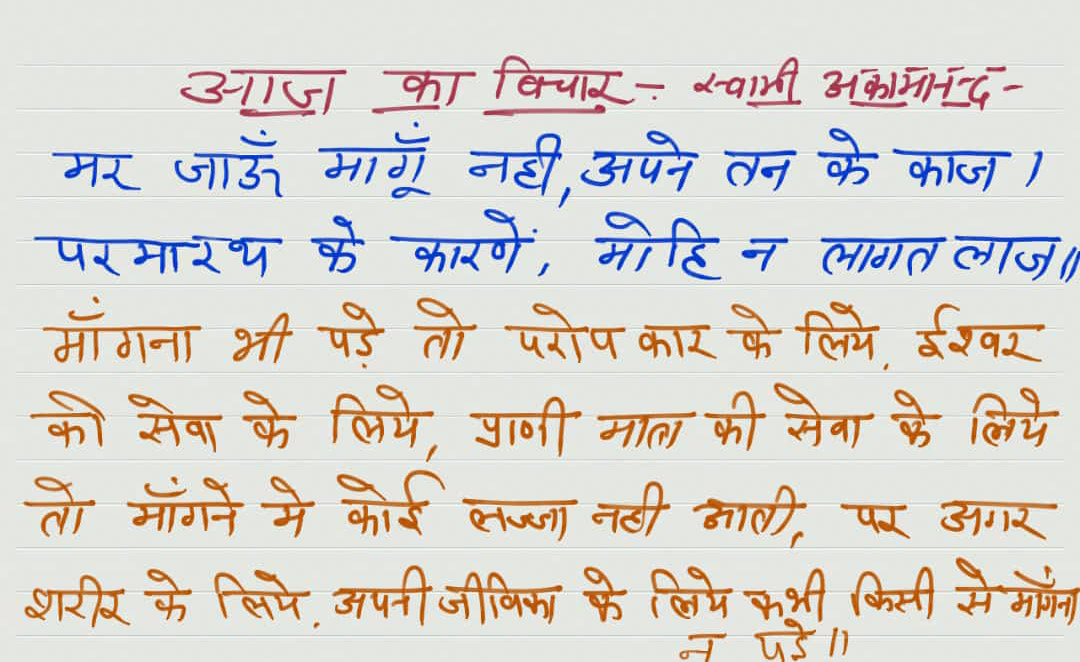 आज का विचार - स्वामी अकामानन्द -
मर जाऊँ मागूँ नही, अपने तन के काज ।
परमारथ के कारणें, मोहि न लागत लाज॥
माँगना भी पड़े तो परोपकार के लिये, ईश्वर
की सेवा के लिये, प्राणी मात्र की सेवा के लिये
तो माँगने मे कोई लज्जा नही आती, पर अगर
शरीर के लिये, अपनी जीविका के लिये कभी किसी से माँगना
न पड़े॥